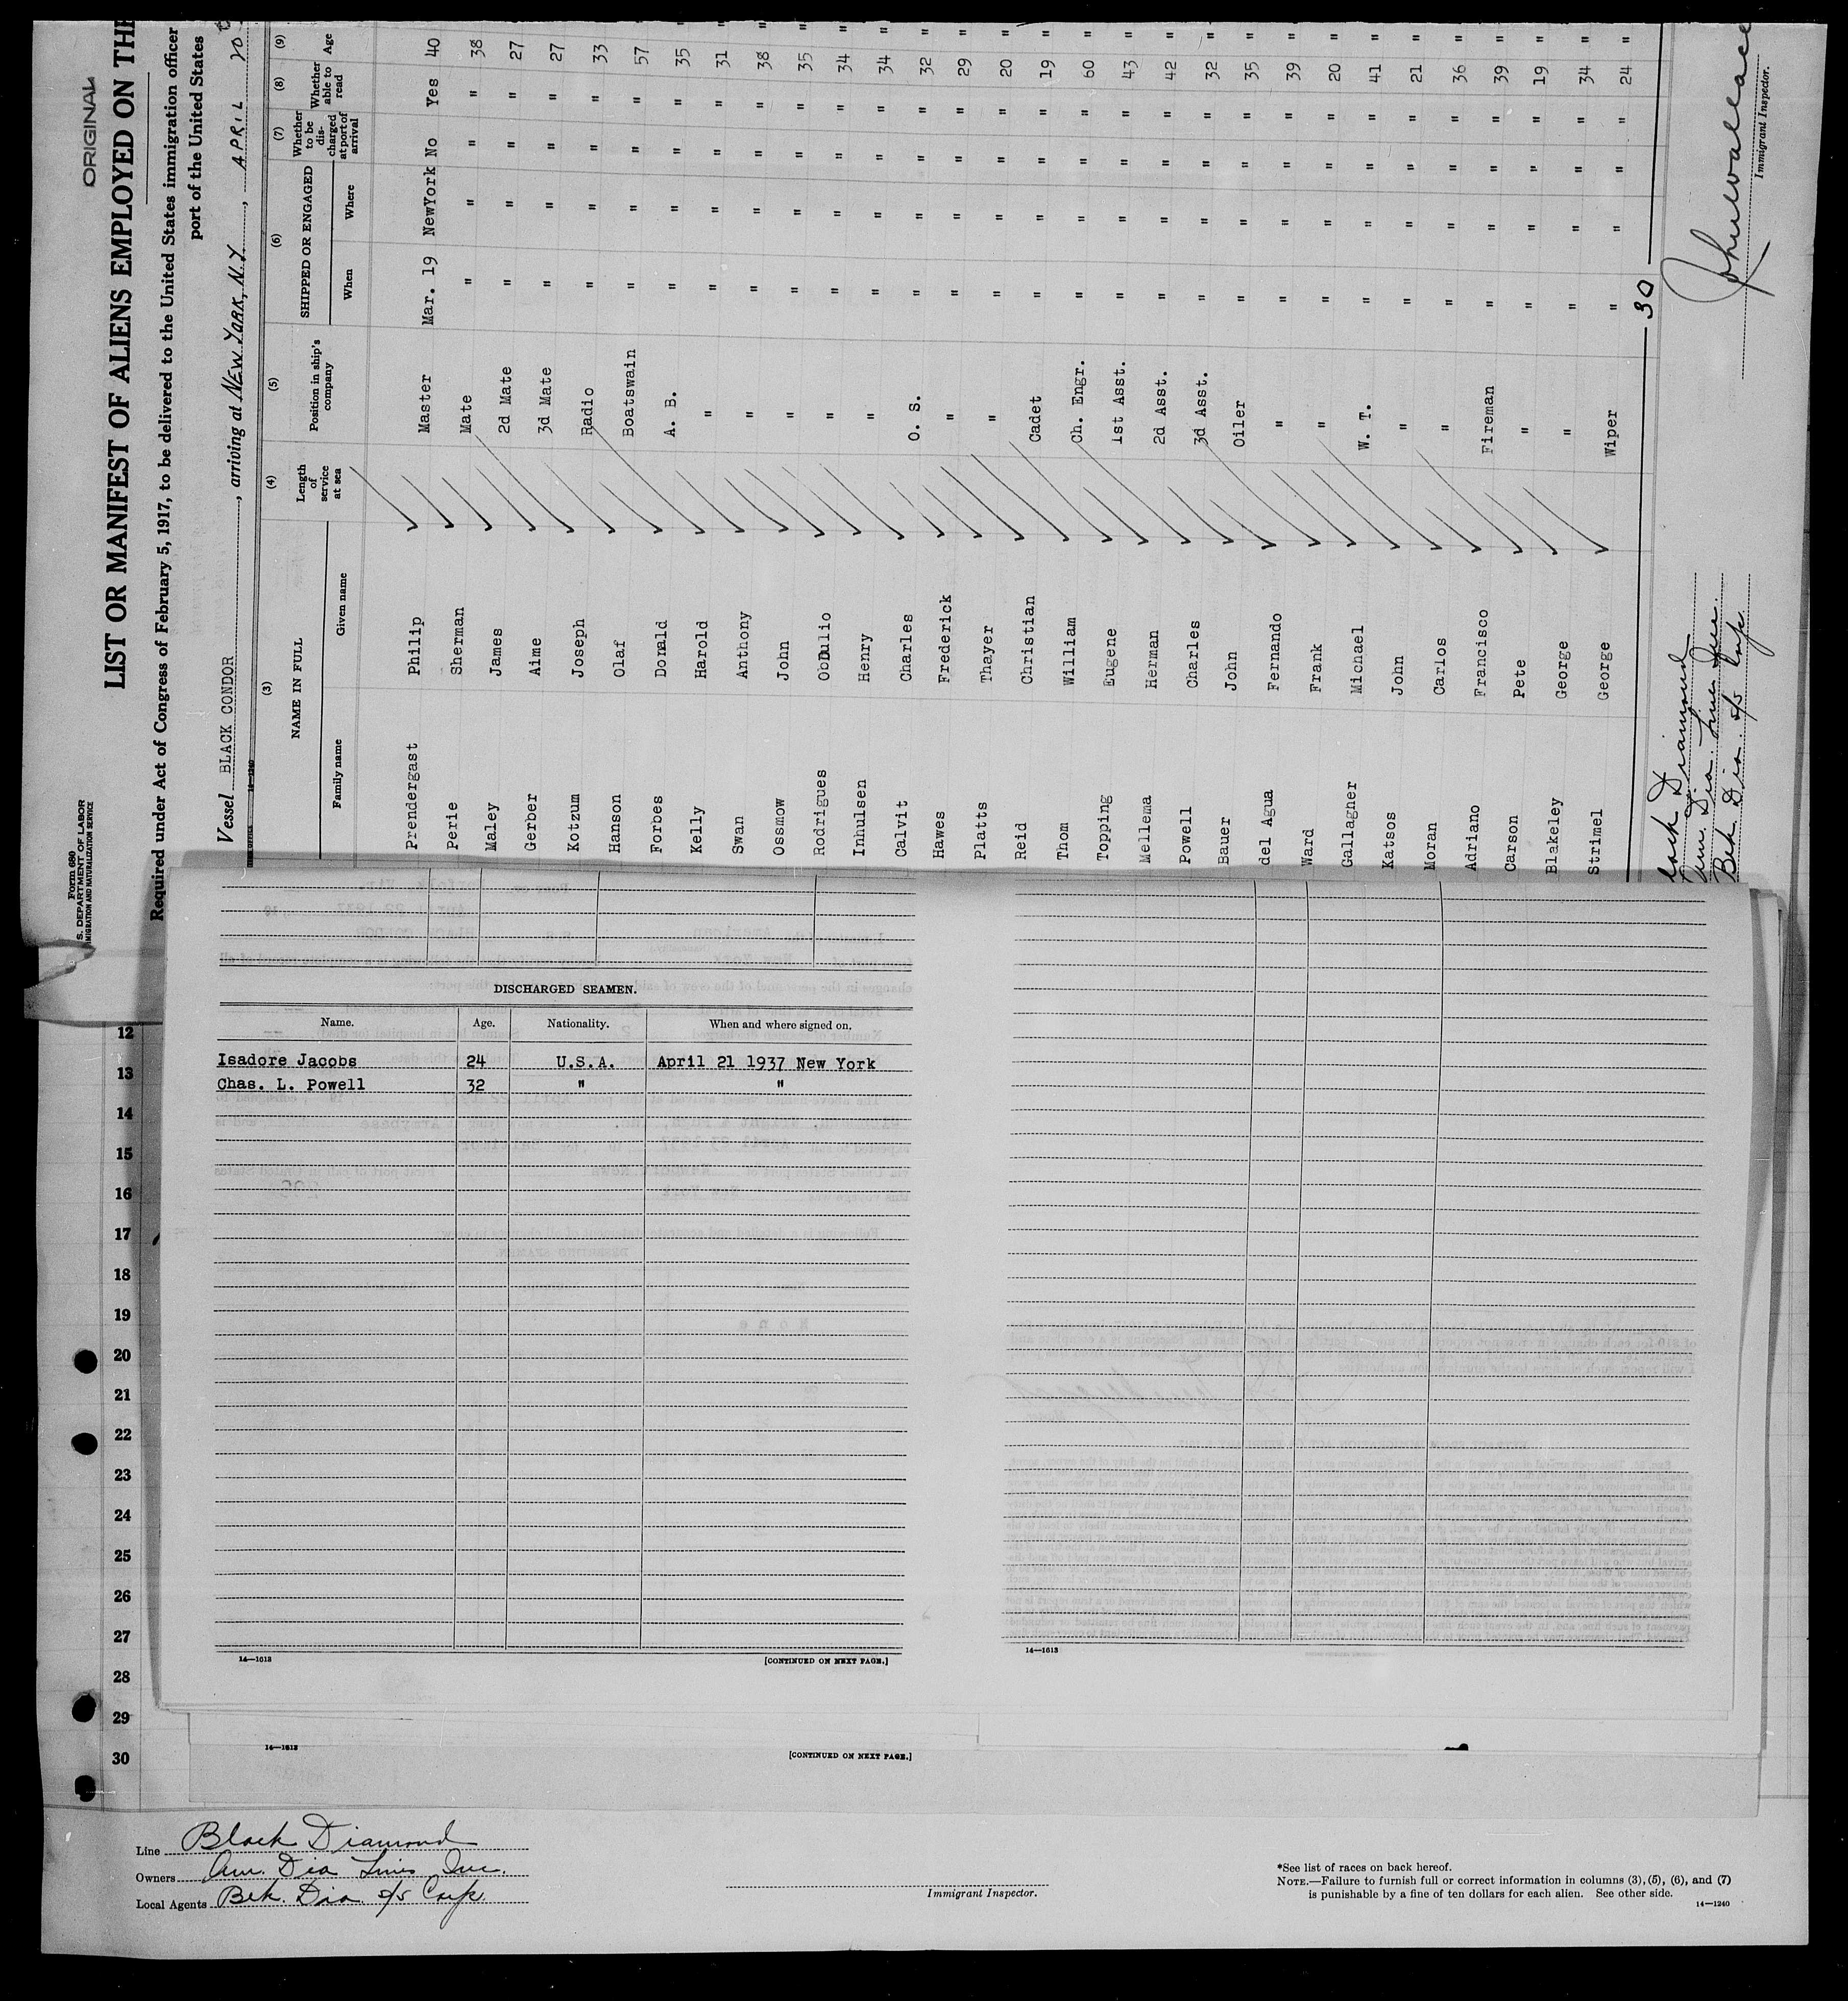 ORIGINAL
Form 680
S. DEPARTMENT OF LABOR
IMMIGRATION AND NATURALIZATION SERVICE
LIST OR MANIFEST OF ALIENS EMPLOYED ON THE
Required under Act of Congress of February 5, 1917, to be delivered to the United States immigration officer
port of the United States
Vessel BLACK CONDOR, arriving at NEW YORK, N.Y., APRIL 20
14—1240
(3) (4) (5) (6) (7) (8) (9)
NAME IN FULL Length of service at sea Position in ship's company SHIPPED OR ENGAGED Whether to be discharged at port of arrival Whether able to read Age
Family name Given name When Where
Prendergast Philip Master Mar. 19 NewYork No Yes 40 "
Perie Sherman Mate " " " " 38 "
Maley James 2d Mate " " " " 27 "
Gerber Aime 3d Mate " " " " 27 "
Kotzum Joseph Radio " " " " 33 "
Hanson Olaf Boatswain " " " " 57 "
Forbes Donald A. B. " " " " 35 "
Kelly Harold " " " " " 31 "
Swan Anthony " " " " " 38 "
Ossmow John " " " " " 35 "
Rodrigues Obdulio " " " " " 34 "
Inhulsen Henry " " " " " 34 "
Calvit Charles O. S. " " " " 32 "
Hawes Frederick " " " " " 29 "
Platts Thayer " " " " " 20 "
Reid Christian Cadet " " " " 19 "
Thom William Ch. Engr. " " " " 60 "
Topping Eugene 1st Asst. " " " " 43 "
Mellema Herman 2d Asst. " " " " 42 "
Powell Charles 3d Asst. " " " " 32 "
Bauer John Oiler " " " " 35 "
del Agua Fernando " " " " " 39 "
Ward Frank " " " " " 20 "
Gallagher Michael W. T. " " " " 41 "
Katsos John " " " " " 21 "
Moran Carlos " " " " " 36 "
Adriano Francisco Fireman " " " " 39 "
Carson Pete " " " " " 19 "
Blakeley George " " " " " 34 "
Strimel George Wiper " " " " 24 "
30
lack Diamond
Am. Dia. Lines Inc.
Blk Dia. s/s Corp
John Wallace
Immigrant Inspector.
DISCHARGED SEAMEN.
Name. Age. Nationality. When and where signed on.
Isadore Jacobs 24 U.S.A. April 21 1937 New York
Chas. L. Powell 32 " "
14—1613 [CONTINUED ON NEXT PAGE.]
14—1613
12
13
14
15
16
17
18
19
20
21
22
23
24
25
26
27
28
29
30
14—1613 [CONTINUED ON NEXT PAGE.]
Line Black Diamond
Owners Am. Dia Lines Inc.
Local Agents Blk. Dia. s/s Corp
Immigrant Inspector.
*See list of races on back hereof.
NOTE.—Failure to furnish full or correct information in columns (3), (5), (6), and (7)
is punishable by a fine of ten dollars for each alien. See other side.
14—1240